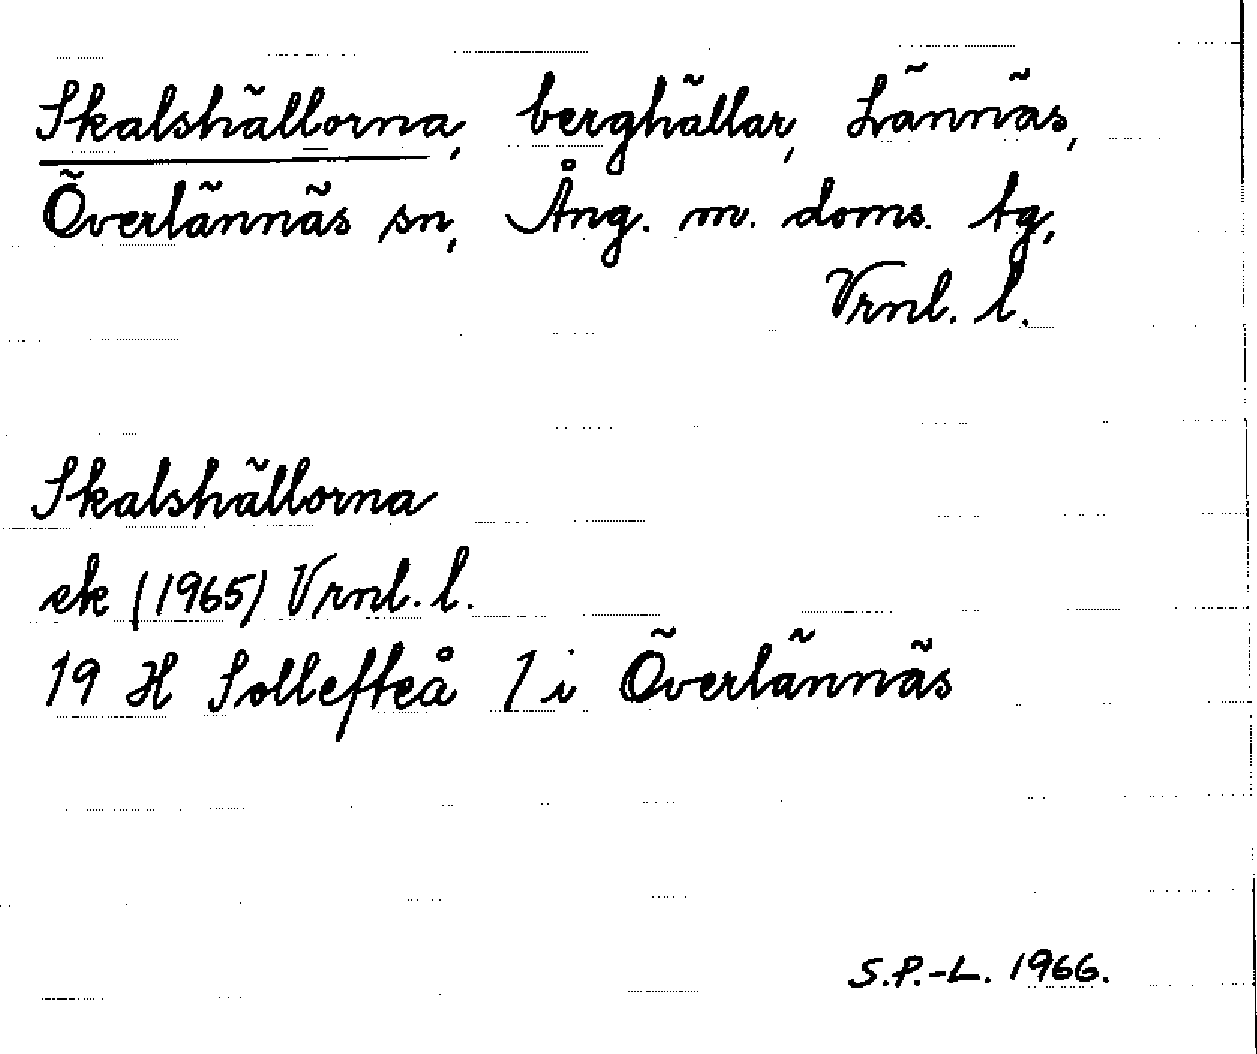 Skalshällorna, berghällar, Lännäs,
Överlännäs sn, Ång. m. doms. tg,
Vrnl. l.
Skalshällorna
ek (1965) Vrnl. l.
19 H Sollefteå 1 i Överlännäs
S.P.-L. 1966.